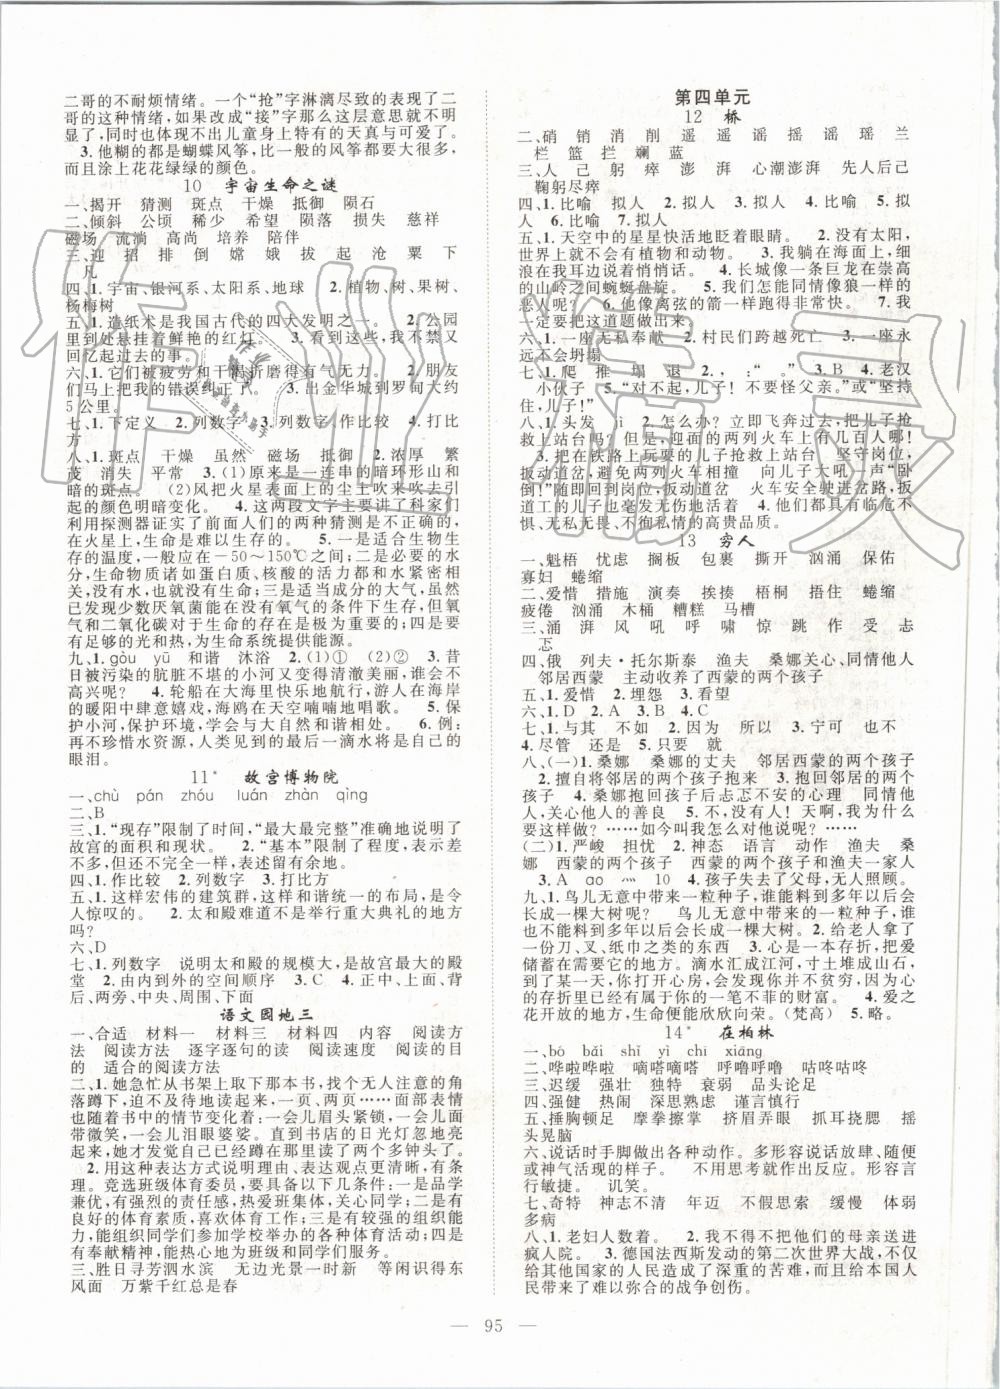 二哥的不耐烦情绪。一个“抢”字淋漓尽致的表现了二
哥的这种情绪,如果改成“接”字那么这层意思就不明
显了,同时也写出儿童身上特有的天真与可爱了。
3. 他糊的都是蝴蝶风筝,比一般的风筝都高大,
而且涂上花花绿绿的颜色。
10 宇宙生命之谜
一、揭开 猜测 斑点 干燥 抵御 陨石
二、倾斜 公顷 稀少 希望 陨落 损失 慈祥
磁场 流淌 高尚 培养 陪伴
三、迎 招 排 倒 嫦 娥 拔 起 沧 粟 下
凡
四、1. 宇宙、银河系、太阳系、地球 2. 植物、树、果树、
杨梅树
五、1. 造纸术是我国古代的四大发明之一。 2. 公园
里到处悬挂着鲜艳的红灯。 3. 看到这些,我不禁又
回忆起过去的事。
六、1. 它们被疲劳和干渴折磨得有气无力。 2. 朋友
们马上把我的错误纠正了。 3. 出金华城到罗甸大约
5公里。
七、1. 下定义 2. 列数字 3. 列数字、作比较 4. 打比
方
八、1. 斑点 干燥 虽然 磁场 抵御 2. 浓厚 繁
茂 消失 平常 3. (1)原来是一连串的暗环形山和
暗的斑点。 (2)风把火星表面上的尘土吹来吹去引
起的颜色明暗变化。 4. 这两段文字主要讲了科学家们
利用探测器证实了前面人们的两种猜测是不正确的,
在火星上,生命是难以生存的。 5. 一是适合生物生
存的温度,一般应在-50~150℃之间;二是必要的水
分,生命物质诸如蛋白质、核酸的活力都和水紧密相
关,没有水,也就没有生命;三是适当成分的大气,虽然
已发现少数厌氧菌能在没有氧气的条件下生存,但氧
气和二氧化碳对于生命的存在是极为重要的;四是要
有足够的光和热,为生命系统提供能源。
九、1. gòu yū 和谐 沐浴 2. (1)① (2)② 3. 昔
日被污染的肮脏不堪的小河现在变得清澈美丽,谁会不
高兴呢? 4. 轮船在大海里快乐地航行,游人在海岸
的暖阳中肆意嬉戏,海鸥在天空喃喃地唱歌。 5. 保
护小河,保护环境,学会与大自然和谐相处。 6. 例:
再不珍惜水资源,人类见到的最后一滴水将是自己的
眼泪。
11* 故宫博物院
一、chù pán zhóu luán zhàn qìng
二、B
三、1. “现存”限制了时间,“最大最完整”准确地说明了
故宫的面积和现状。 2. “基本”限制了程度,表示差
不多,但还不完全,语言准确,留有余地。
四、1. 作比较 2. 列数字 3. 打比方
五、1. 这样宏伟的建筑群,这样和谐统一的布局,是令
人惊叹的。 2. 太和殿难道不是举行重大典礼的地方
吗?
六、D
七、1. 列数字 说明太和殿的规模大,是故宫最大的殿
堂 2. 由内到外的空间顺序 3. C 4. 正中、上面、背
后、两旁、中央、周围、下面
语文园地三
一、合适 材料一 材料三 材料四 内容 阅读方
法 阅读方法 逐字逐句的读 阅读速度 阅读的目
的 适合的阅读方法
二、1. 她急忙从书架上取下那本书,找了一个合适的角
落蹲下,迫不及待地读起来,一会儿……面部表情也
随着书中的情节变化着:一会儿眉头紧锁,一会儿面
带微笑,一会儿泪眼婆娑。直到书店的日光灯忽地亮
起来,她才发觉自己已经蹲在那里读了两个多钟头了。
2. 用这种表达方式说明理由,更清晰、更有条理。
竞选班级体育委员,要具备以下几条件:一是品学
兼优,有强烈的责任感,热爱班集体,关心同学;二是有
良好的体育素质,喜欢体育工作;三是有较强的组织能
力,能组织同学们参加学校举办的各种体育活动;四是
有奉献精神,能热心地为班级和同学们服务。
三、胜日寻芳泗水滨 无边光景一时新 等闲识得东
风面 万紫千红总是春
第四单元
12 桥
二、硝 销 消 削 遥 遥 谣 摇 谣 瑶 兰
栏 篮 拦 斓 蓝
三、人 己 躬 瘁 澎 湃 心潮澎湃 先人后己
鞠躬尽瘁
四、1. 比喻 拟人 2. 拟人 3. 拟人 4. 比喻 5. 拟
人 6. 比喻 7. 拟人
五、1. 天空中的星星快活地眨着眼睛。 2. 没有太阳,
世界上就不会有植物和动物。 3. 我躺在海面上,细
浪在我耳边说着悄悄话。 4. 长城像一条巨龙在崇高
的山岭之间蜿蜒盘旋。 5. 我们怎能同情像狼一样的
恶人呢? 6. 他像离弦的箭一样跑得非常快。 7. 我
一定要把这道题做出来。
六、1. 一座无私奉献 2. 村民们跨越死亡 3. 一座永
远不会坍塌
七、1. 爬 推 塌 退 2. , ;“。” 4. 老汉
小伙子 5. “对不起,儿子!不要怪父亲。”或“坚持
住,儿子!”
八、1. 头发 jì 2. 怎么办?立即飞奔过去,把儿子抢
救上站台吗?但是,迎面的两列火车上有几百人哪!
3. 把在铁路上玩耍的儿子抢救上站台 坚守岗位,
扳动道岔,避免两列火车相撞 向儿子大吼一声“卧
倒!”随即回到岗位,扳动道岔 火车安全驶进岔路,扳
道工的儿子也毫发无伤地活着 4. 他们都具有临危不
惧、无私无畏、品质高尚的高贵品质。
13 穷人
一、魁梧 忧虑 搁板 包裹 撕开 汹涌 保佑
寡妇 蜷缩
二、爱惜 措施 演奏 挨揍 梧桐 捂住 蜷缩
疲倦 汹涌 木桶 糟糕 马槽
三、涌 湃 风 吼 呼 啸 惊 跳 作 受 忐
忑
四、俄 列夫·托尔斯泰 渔夫 桑娜关心、同情他人
邻居西蒙 主动收养了西蒙的两个孩子
五、1. 爱惜 2. 埋怨 3. 看望
六、1. D 2. A 3. B 4. C
七、1. 与其 不如 2. 因为 所以 3. 宁可 也不
4. 尽管 还是 5. 只要 就
八、(一)1. 桑娜 桑娜的丈夫 邻居西蒙的两个孩子
2. 擅自将邻居的两个孩子抱来 3. 抱回邻居的两个孩
子 4. 桑娜抱回孩子后忐忑不安的心理 桑娜宁可自己
吃苦,关心他人的善良 5. 不,没有人来过!天啊,我为什么
要这样做?……如今叫我怎么对他说呢?……
(二)1. 严峻 担忧 2. 神态 语言 动作 渔夫 桑
娜 西蒙的两个孩子 西蒙的两个孩子 渔夫 桑娜
3. A ao 灬 10 4. 孩子失去了父母,无人照顾。
九、1. 鸟儿无意中带来一粒种子,谁能料到多年以后会
长成一棵大树呢? 鸟儿无意中带来的一粒种子,谁
也不能料到多年以后会长成一棵大树。 2. 给老人拿了
一份刀、叉、纸巾之类的东西 3. 心是一本存折,把爱
储蓄在需要它的地方。滴水汇成江河,寸土堆成山石,
到了某一天,你打开心房,会惊喜地发现,它是你心灵
的存折里已储存下的一笔不菲的财富。 4. 爱之
花开放的地方,生命便能欣欣向荣。(梵高) 5. 略。
14* 在柏林
一、bó bǎi shǐ yì chī xiāng
二、哗啦哗啦 嘀嗒嘀嗒 呼噜呼噜 咕咚咕咚
三、迟缓 强壮 独特 衰弱 品头论足
四、强健 热闹 深思熟虑 谨言慎行
五、捶胸顿足 摩拳擦掌 挤眉弄眼 抓耳挠腮 摇
头晃脑
六、说话时手脚做出各种动作。形容说话放肆、随便
或神气活现的样子。 不用思考就作出反应。形容言
行敏捷。 讥笑。
七、奇特 神志不清 年迈 不假思索 缓慢 体弱
多病
八、1. 老妇人数着。 2. 我不得不把他们的母亲送进
疯人院。 3. 德国法西斯发动的第二次世界大战,不仅
给其他国家的人民造成了深重的苦难,而且给本国人
民带来了难以弥合的战争创伤。
— 95 —